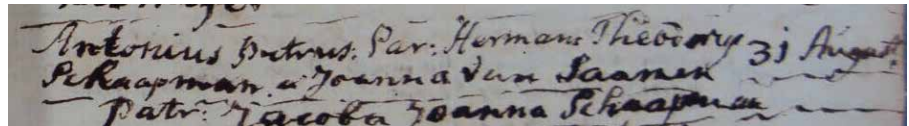 Antonius Petrus. Par: Herman Theodorus 31 August.
Schaapman. a Joanna van Saamen
Patr: Jacoba Joanna Schaapman